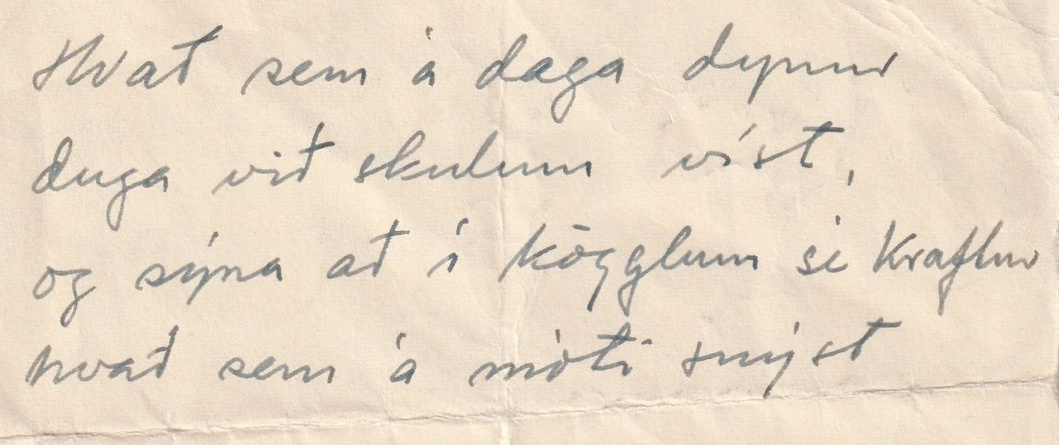 Hvað sem á daga dynur
duga við skulum víst,
og sýna að í kögglum sé kraftur
hvað sem á móti snýst